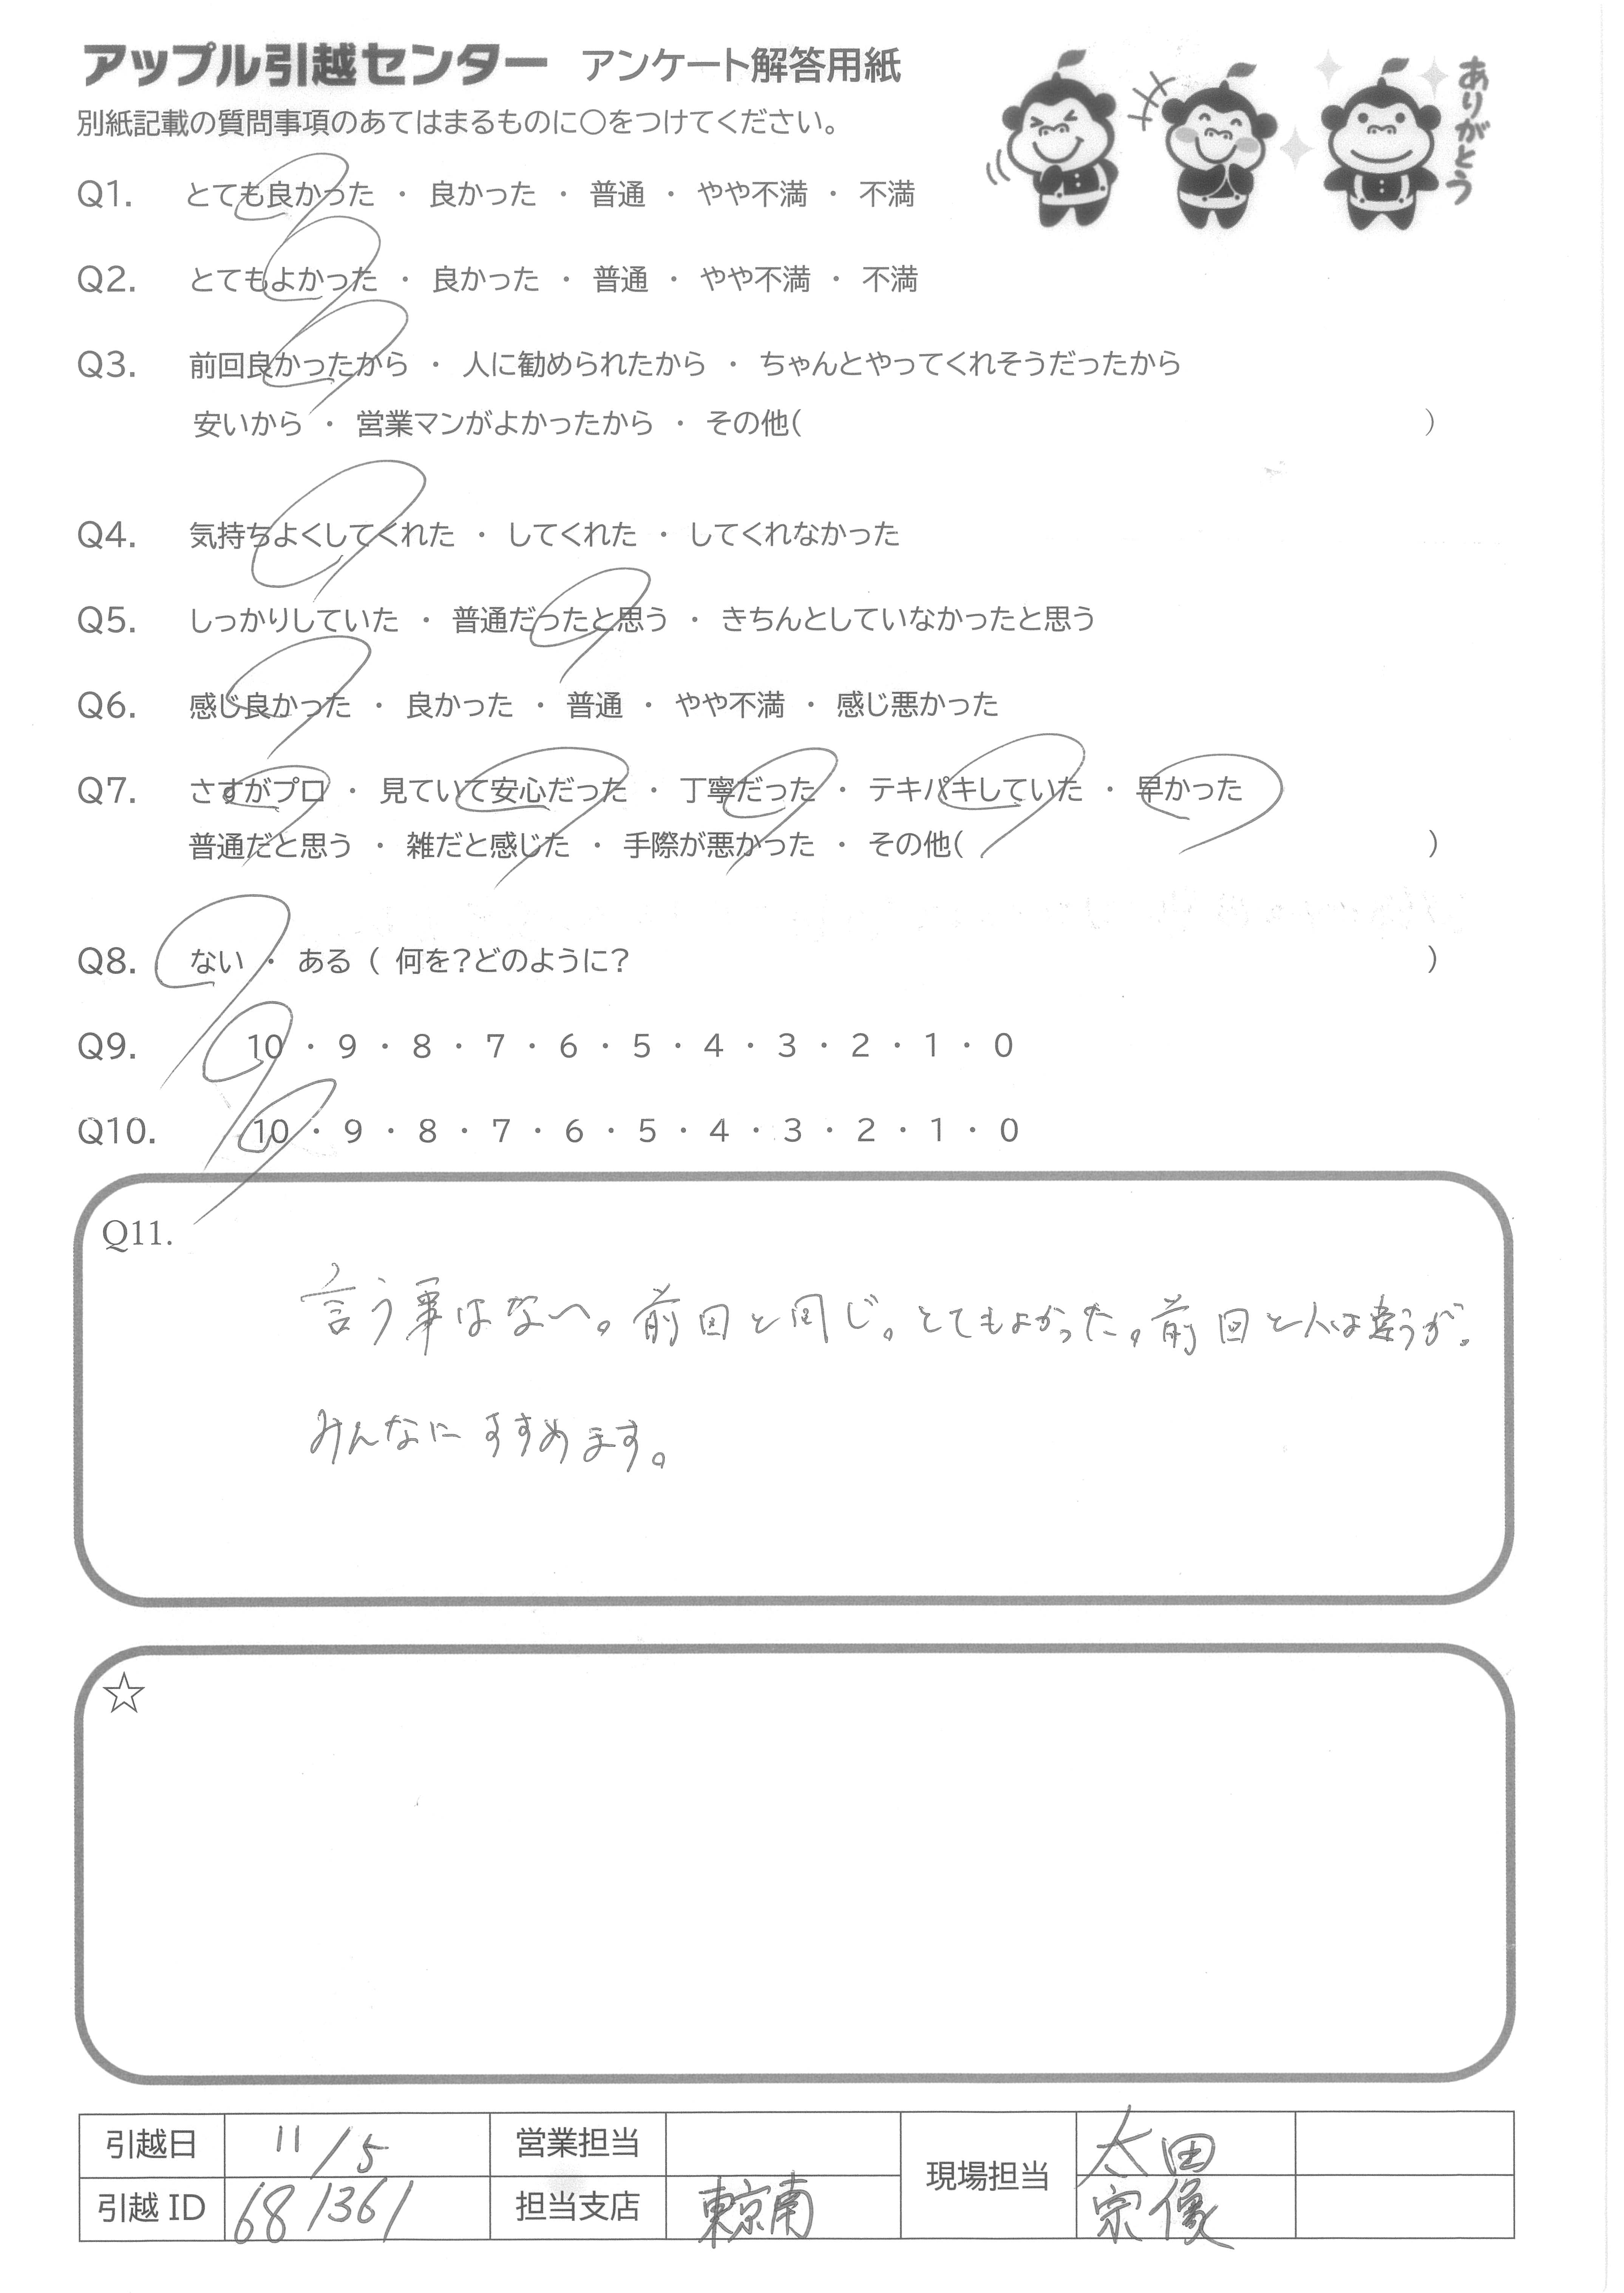 アップル引越センター アンケート解答用紙
ありがとう
別紙記載の質問事項のあてはまるものに〇をつけてください。
Q1. とても良かった ・ 良かった ・ 普通 ・ やや不満 ・ 不満
Q2. とてもよかった ・ 良かった ・ 普通 ・ やや不満 ・ 不満
Q3. 前回良かったから ・ 人に勧められたから ・ ちゃんとやってくれそうだったから
安いから ・ 営業マンがよかったから ・ その他( )
Q4. 気持ちよくしてくれた ・ してくれた ・ してくれなかった
Q5. しっかりしていた ・ 普通だったと思う ・ きちんとしていなかったと思う
Q6. 感じ良かった ・ 良かった ・ 普通 ・ やや不満 ・ 感じ悪かった
Q7. さすがプロ ・ 見ていて安心だった ・ 丁寧だった ・ テキパキしていた ・ 早かった
普通だと思う ・ 雑だと感じた ・ 手際が悪かった ・ その他( )
Q8. ない ・ ある ( 何を?どのように? )
Q9. 10 ・ 9 ・ 8 ・ 7 ・ 6 ・ 5 ・ 4 ・ 3 ・ 2 ・ 1 ・ 0
Q10. 10 ・ 9 ・ 8 ・ 7 ・ 6 ・ 5 ・ 4 ・ 3 ・ 2 ・ 1 ・ 0
Q11.
言う事はない。前回と同じ。とてもよかった。前回と人は違うが。
みんなにすすめます。
☆
引越日 11/5 営業担当 現場担当 太田
引越ID 681361 担当支店 東京南 宗像